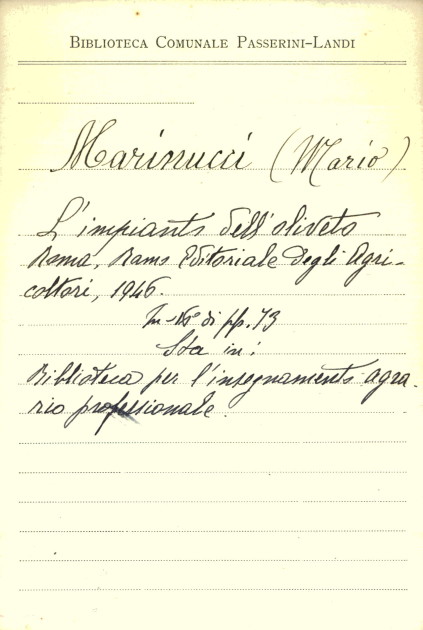 BIBLIOTECA COMUNALE PASSERINI-LANDI
Marinucci (Mario)
L'impianto dell'oliveto
Roma, Ramo Editoriale degli Agri-
coltori, 1946.
In-16° di pp. 73
Sta in:
Biblioteca per l'insegnamento agra-
rio professionale.